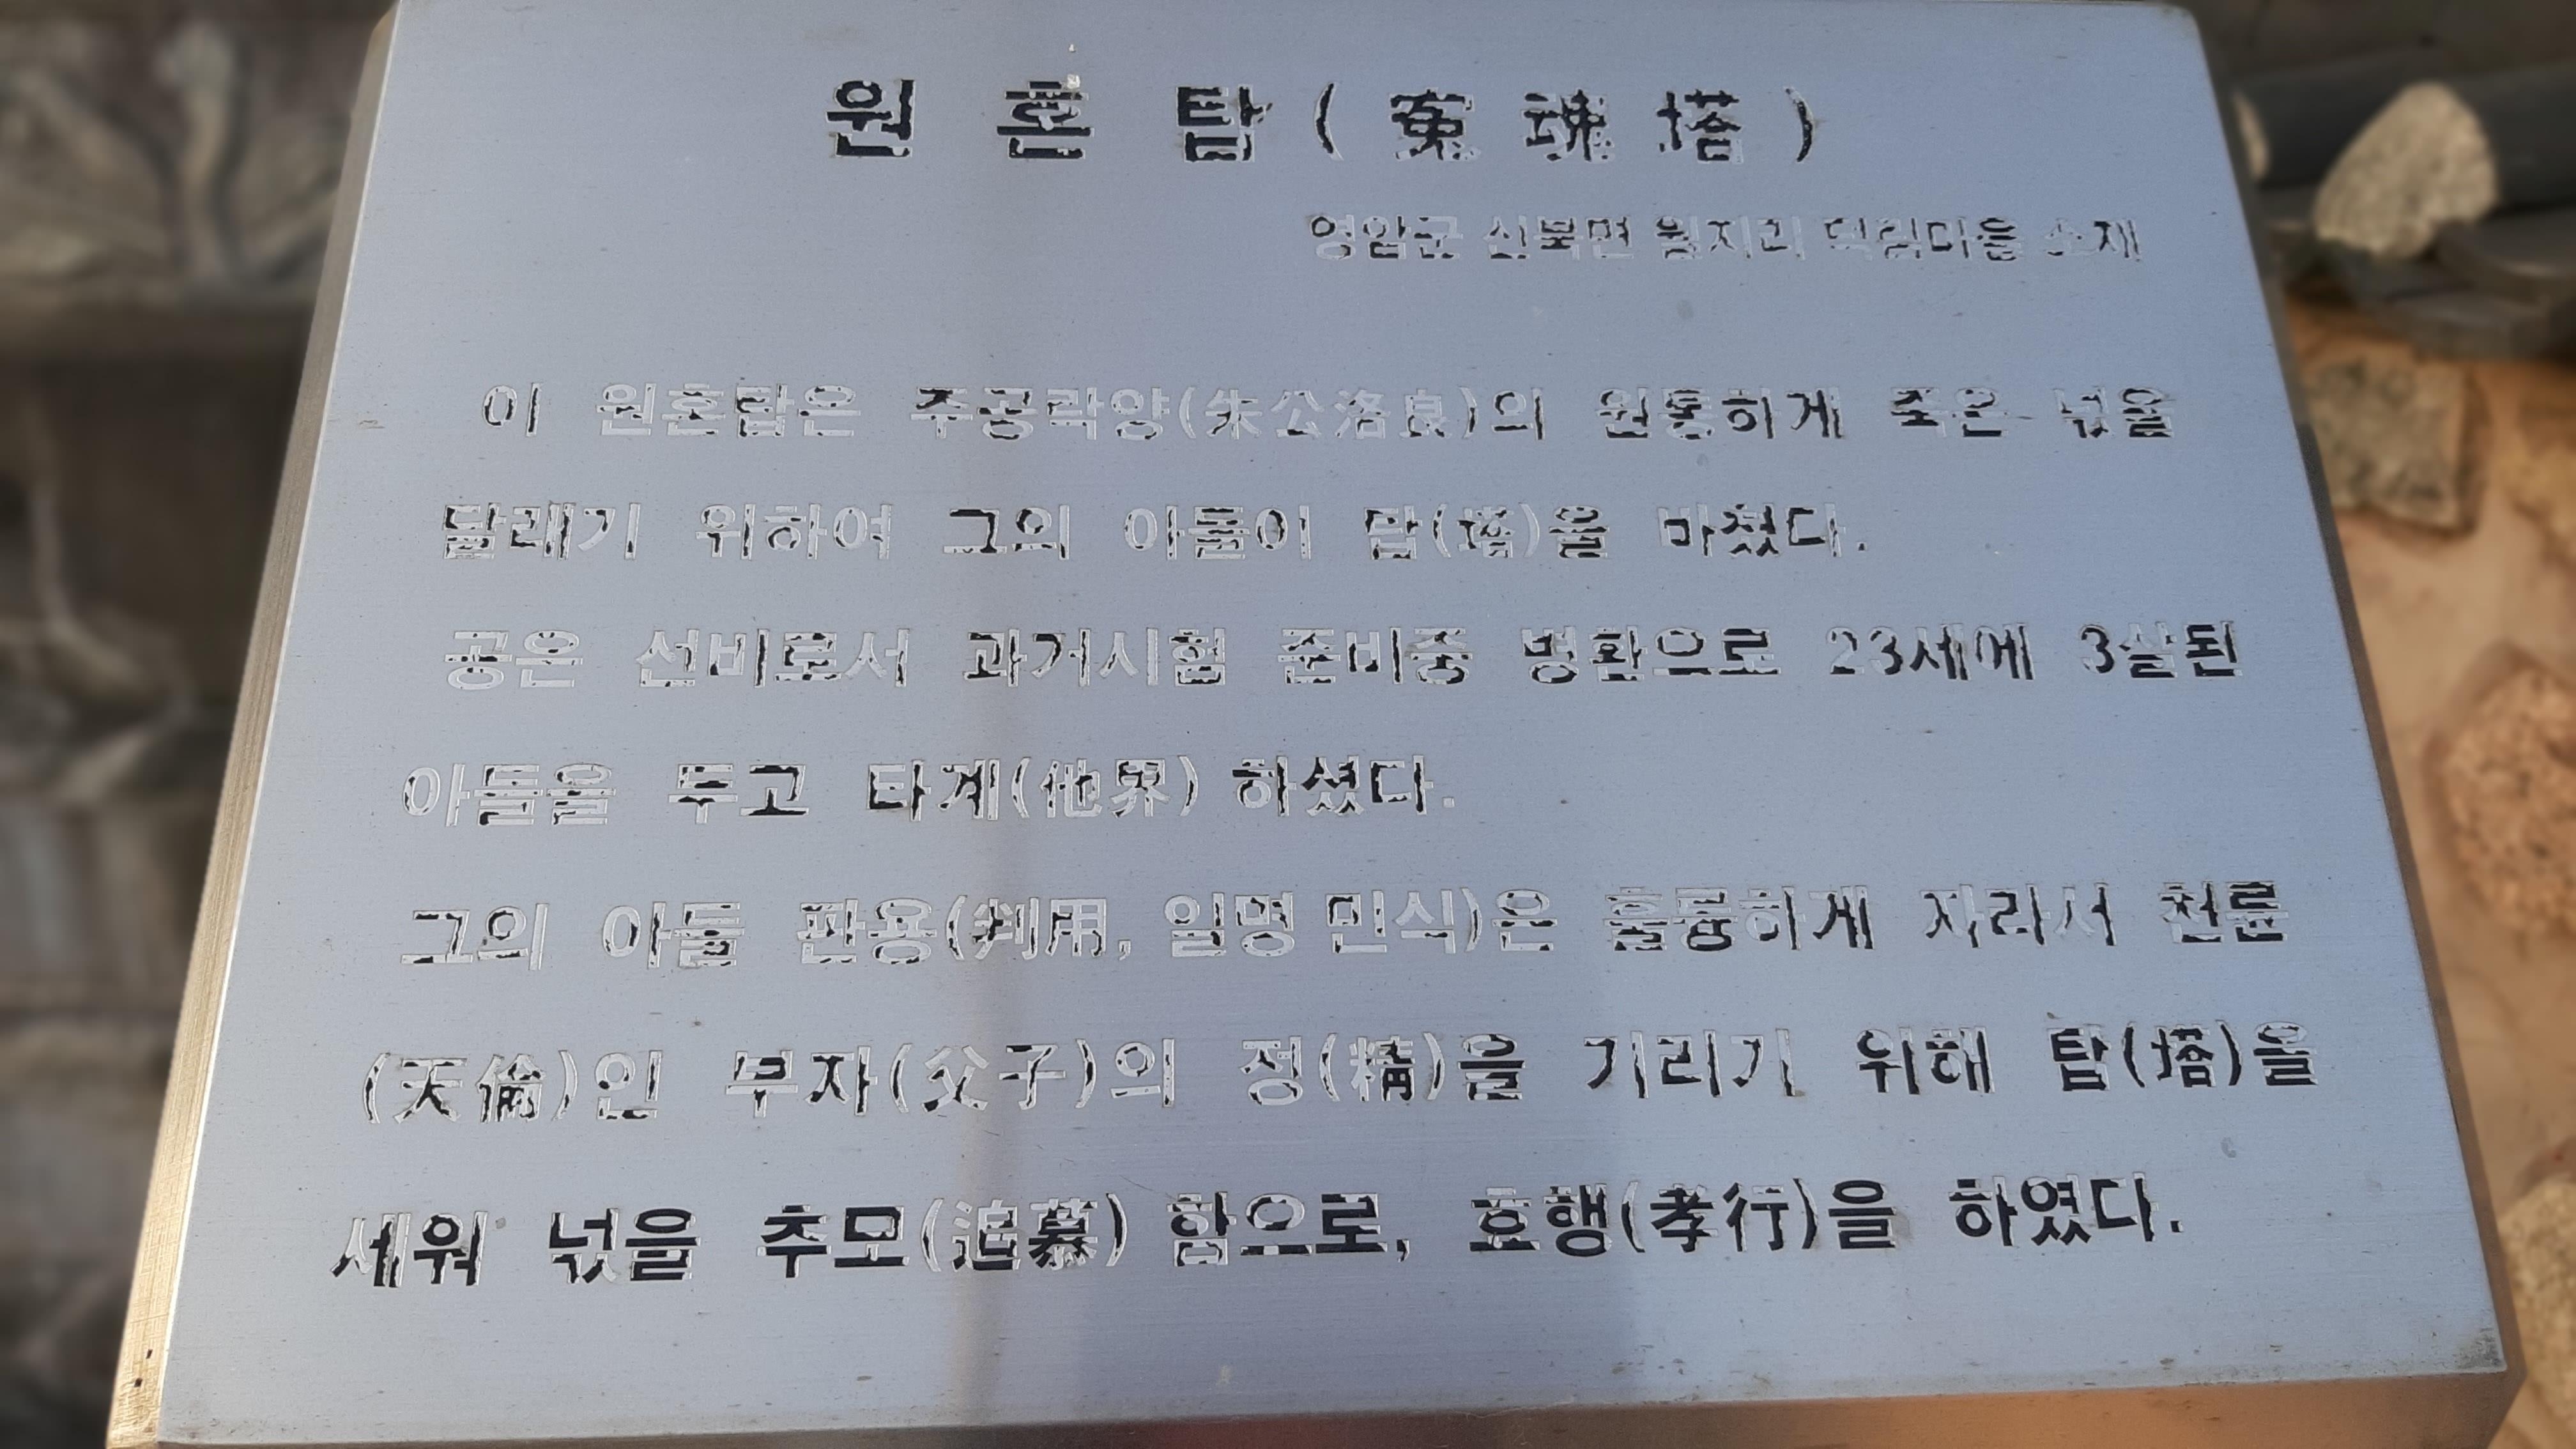 원혼탑(寃魂塔)
영암군 신북면 월지리 덕림마을 소재
이 원혼탑은 주공락양(朱公洛良)의 원통하게 죽은 넋을
달래기 위하여 그의 아들이 탑(塔)을 바쳤다.
공은 선비로서 과거시험 준비중 병환으로 23세에 3살된
아들을 두고 타계(他界) 하셨다.
그의 아들 판용(判用, 일명 민식)은 훌륭하게 자라서 천륜
(天倫)인 부자(父子)의 정(精)을 기리기 위해 탑(塔)을
세워 넋을 추모(追慕) 함으로, 효행(孝行)을 하였다.